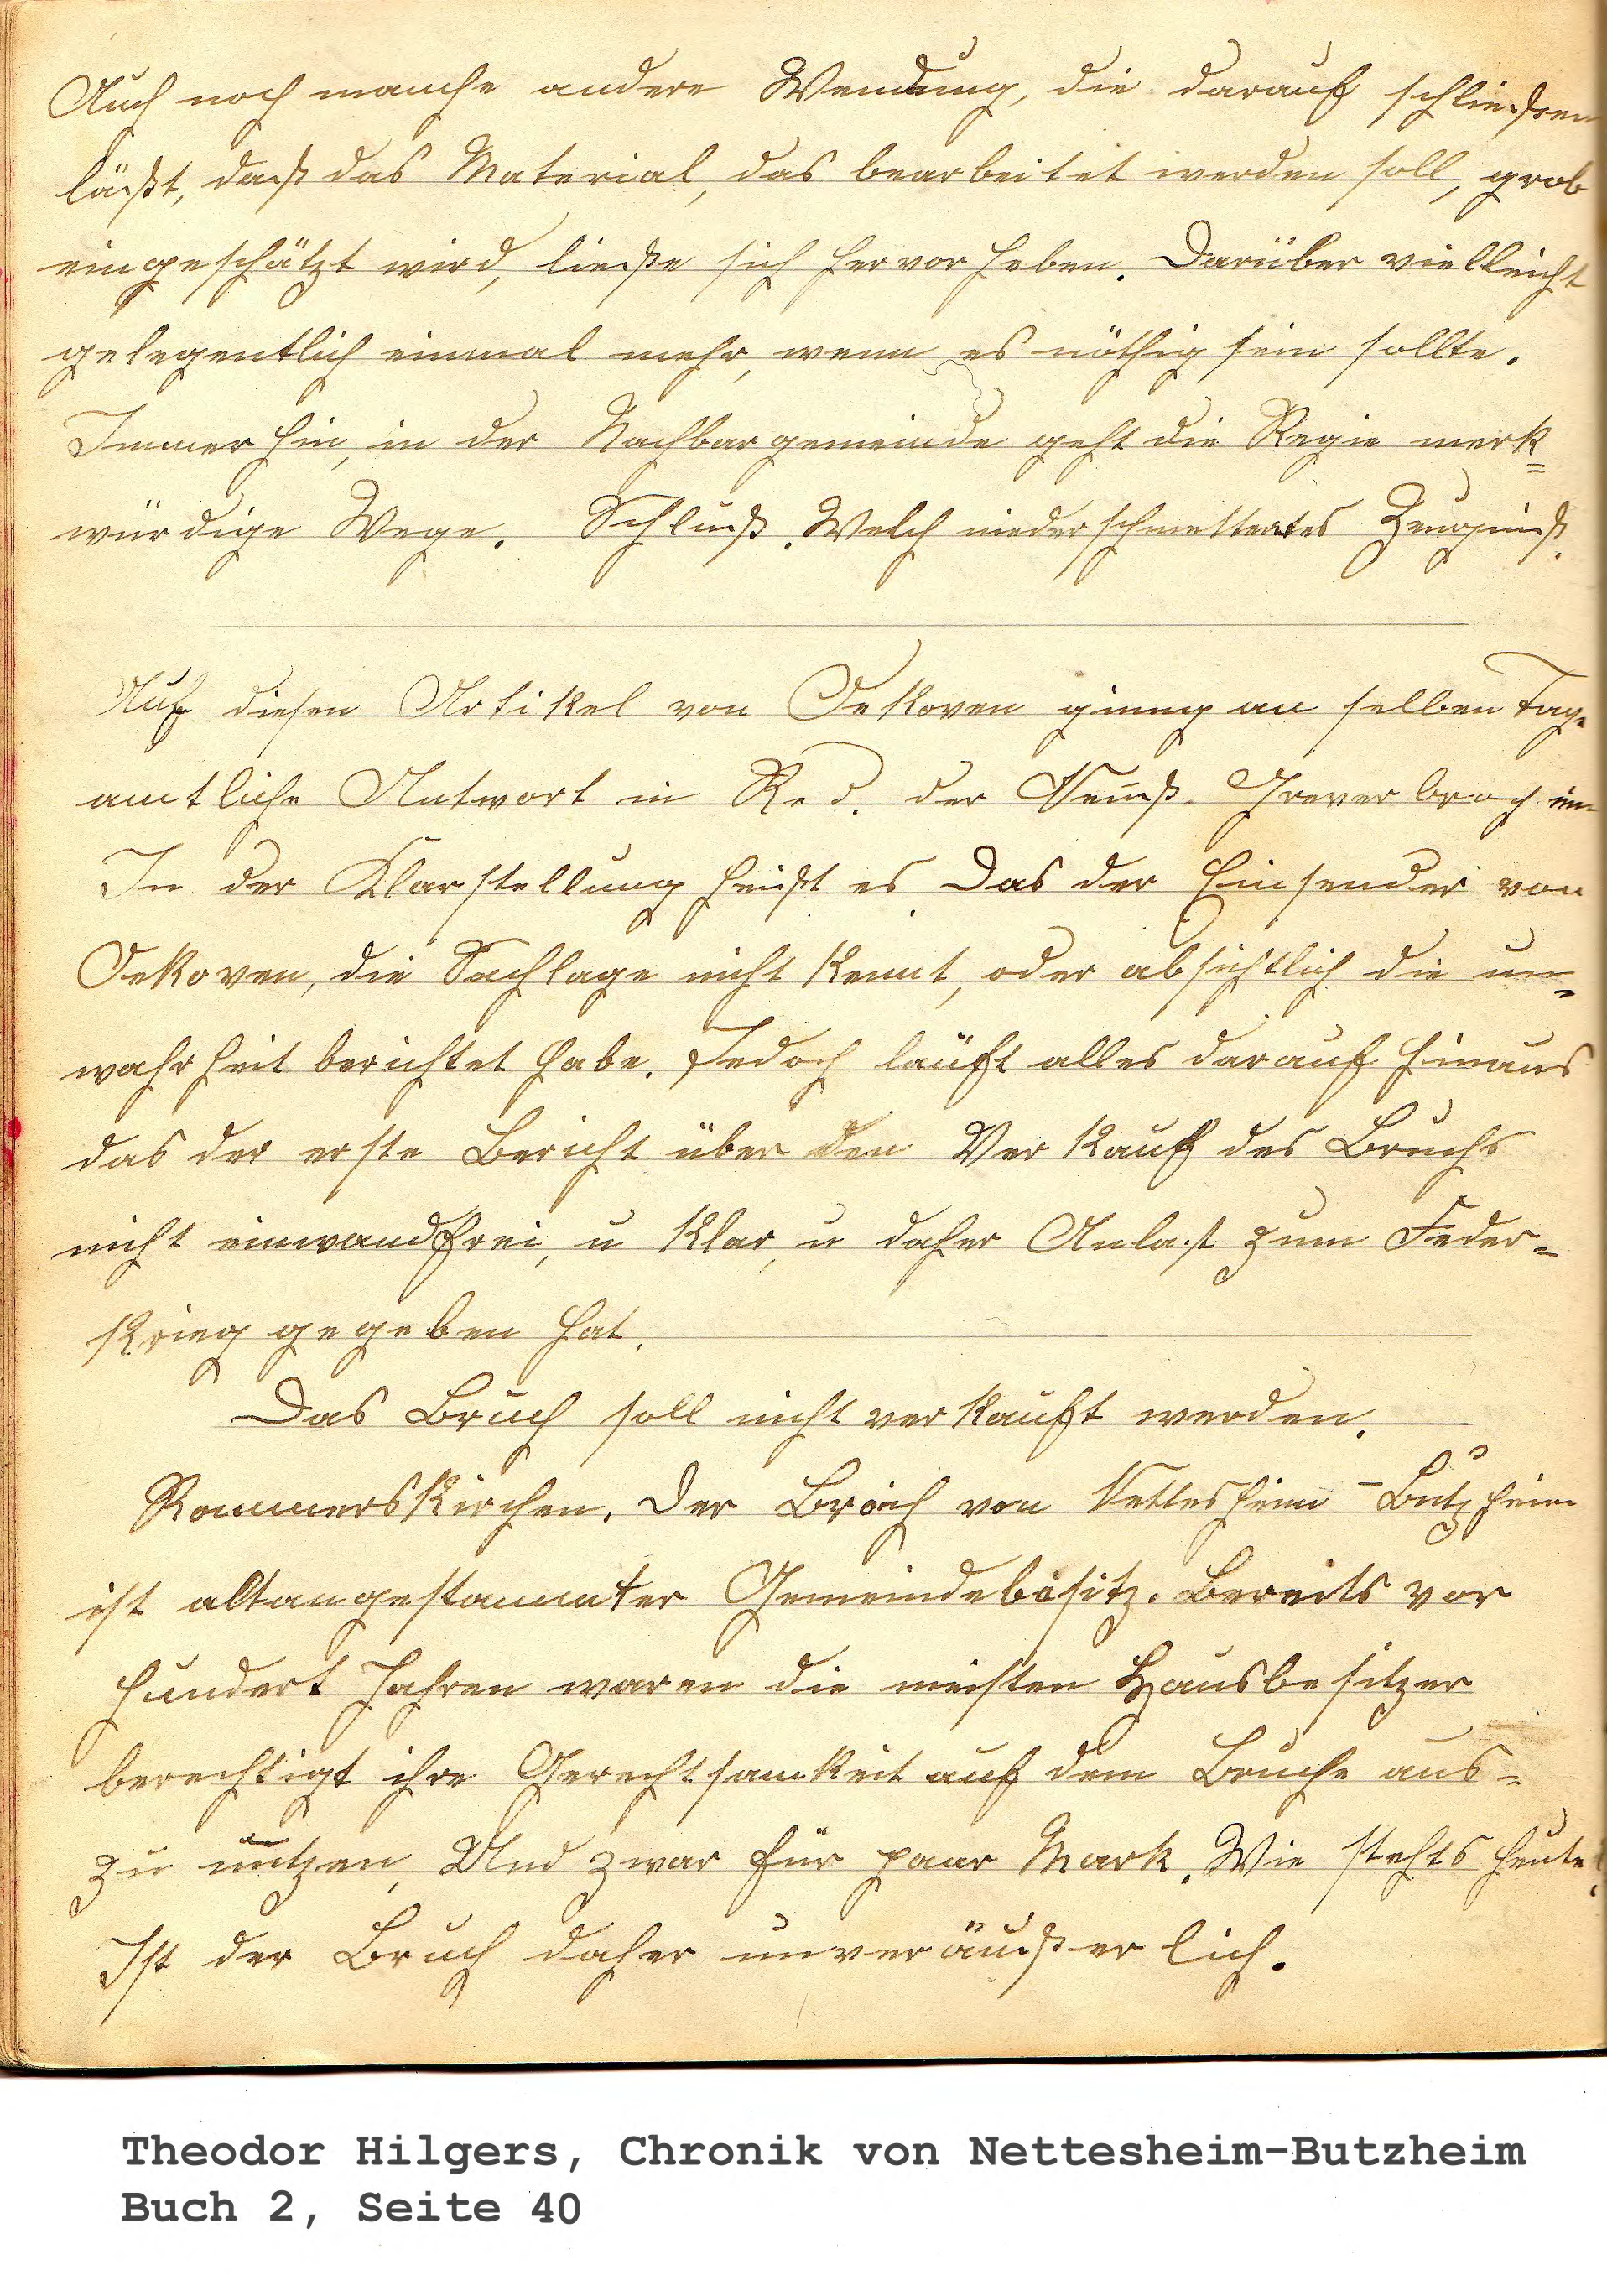 Auch noch manche andere Wendung, die darauf schließen
läßt, daß das Material, das bearbeitet werden soll, grob
eingeschätzt wird, ließe sich hervor heben. Darüber vielleicht
gelegentlich einmal mehr, wenn es nöthig sein sollte.
Immer hin, in der Nachbargemeinde geht die Regie merk=
würdige Wege. Schluß. Welch niederschmetterntes Zeugniß.
Auf diesen Artikel von Oekoven ginng an selben Tage
amtliche Antwort in Red. der Neuß. Grevenbroch. ein
In der Klarstellung heißt es Das der Einsender von
Oekoven, die Sachlage nicht kennt, oder absichtlich die un=
wahrheit berichtet habe. Jedoch läuft alles darauf hinaus
das der erste Bericht über den Verkauf des Bruchs
nicht einwandfrei, u klar, u daher Anlast zum Feder=
krieg gegeben hat.
Das Bruch soll nicht verkauft werden.
Rommerskirchen. Der Broich von Nettesheim - Butzheim
ist altangestammter Gemeindebesitz. Bereits vor
hundert Jahren waren die meisten Hausbesitzer
berechtigt ihre Gerechtsamkeit auf dem Bruche aus=
zu nutzen, Und zwar für paar Mark. Wie stehts heute?
Ist der Bruch daher unveräußerlich.
Theodor Hilgers, Chronik von Nettesheim-Butzheim
Buch 2, Seite 40